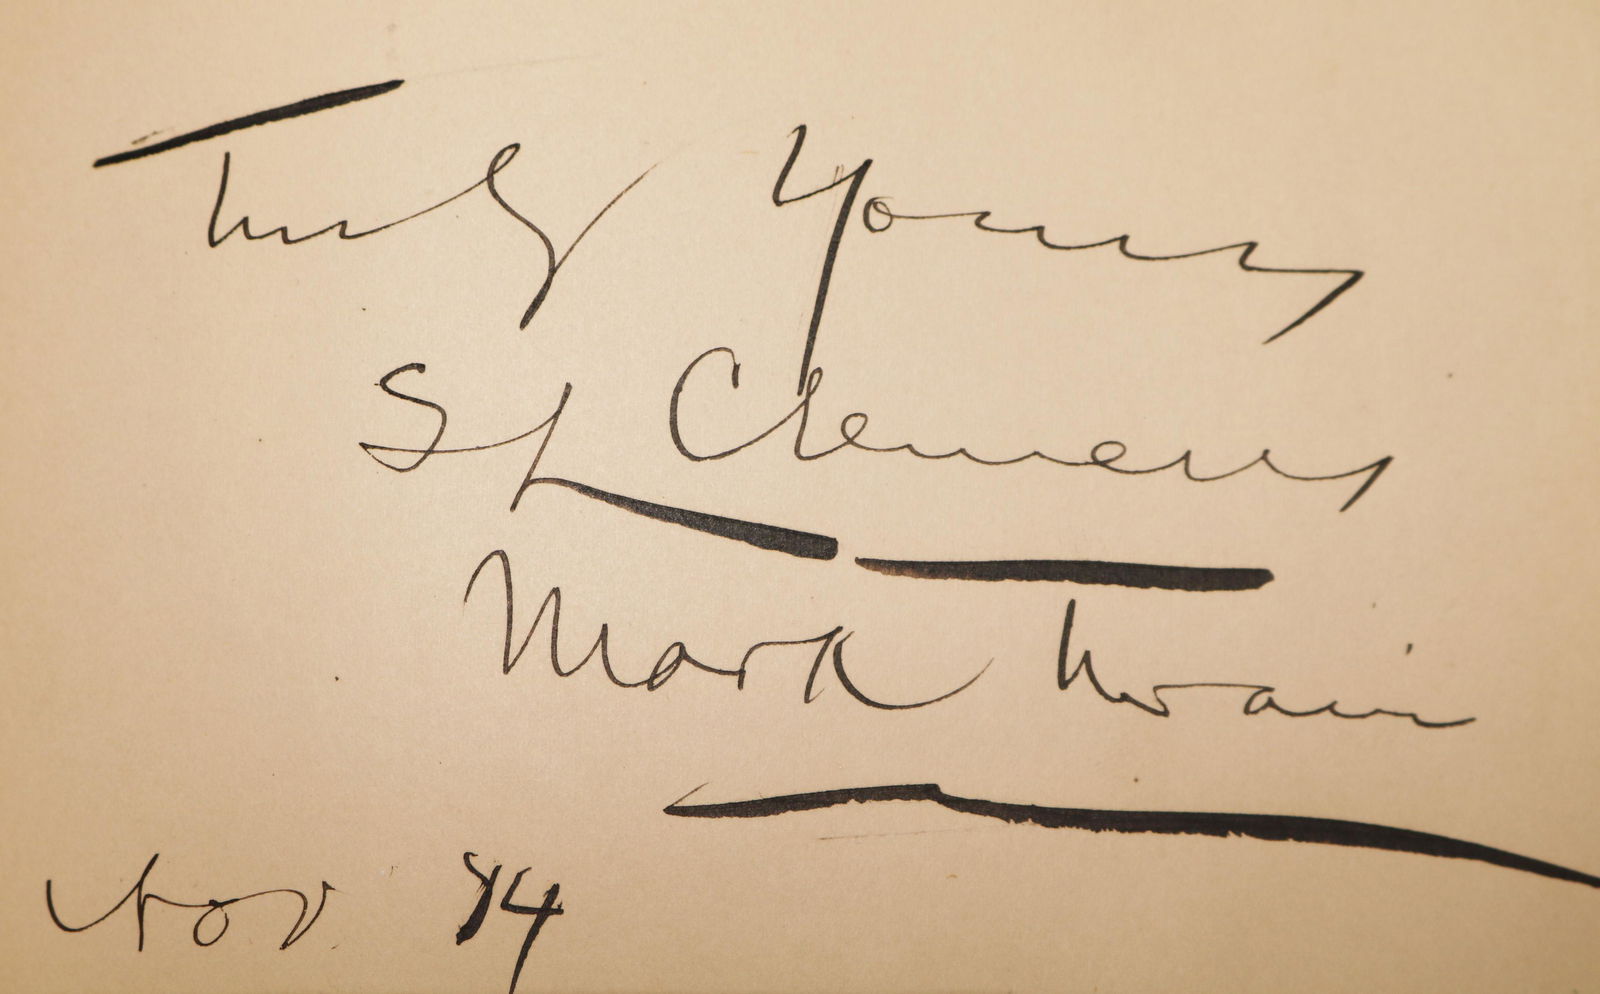 Truly Yours
SL Clemens
Mark Twain
Nov. 84